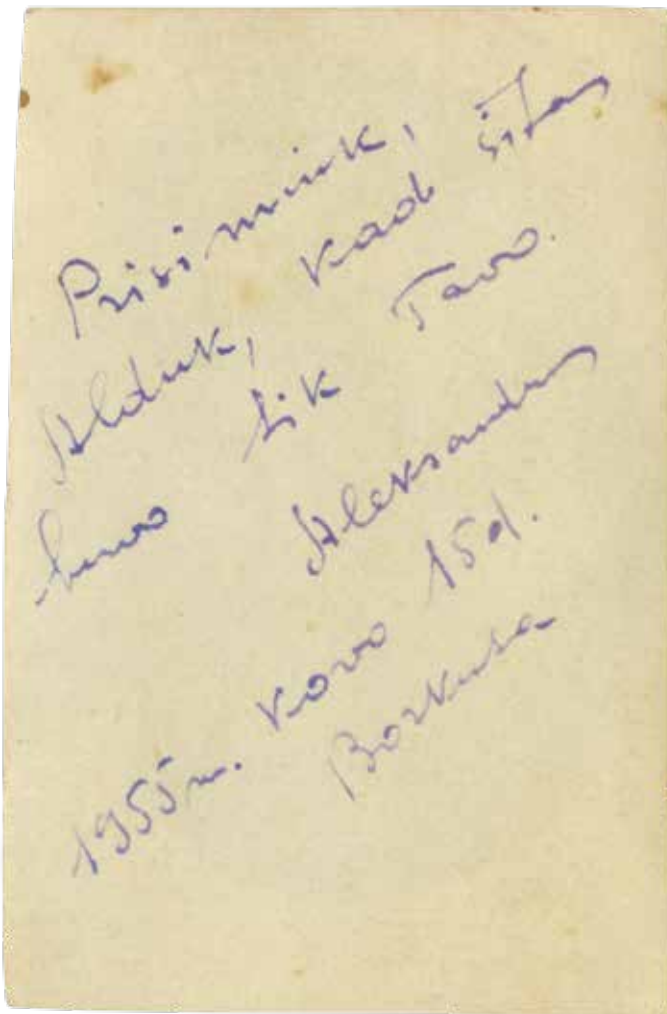 Prisimink,
Alduk, kad šitas
buvo tik Tavo.
Aleksandras
1955 m. kovo 15 d.
Vorkuta